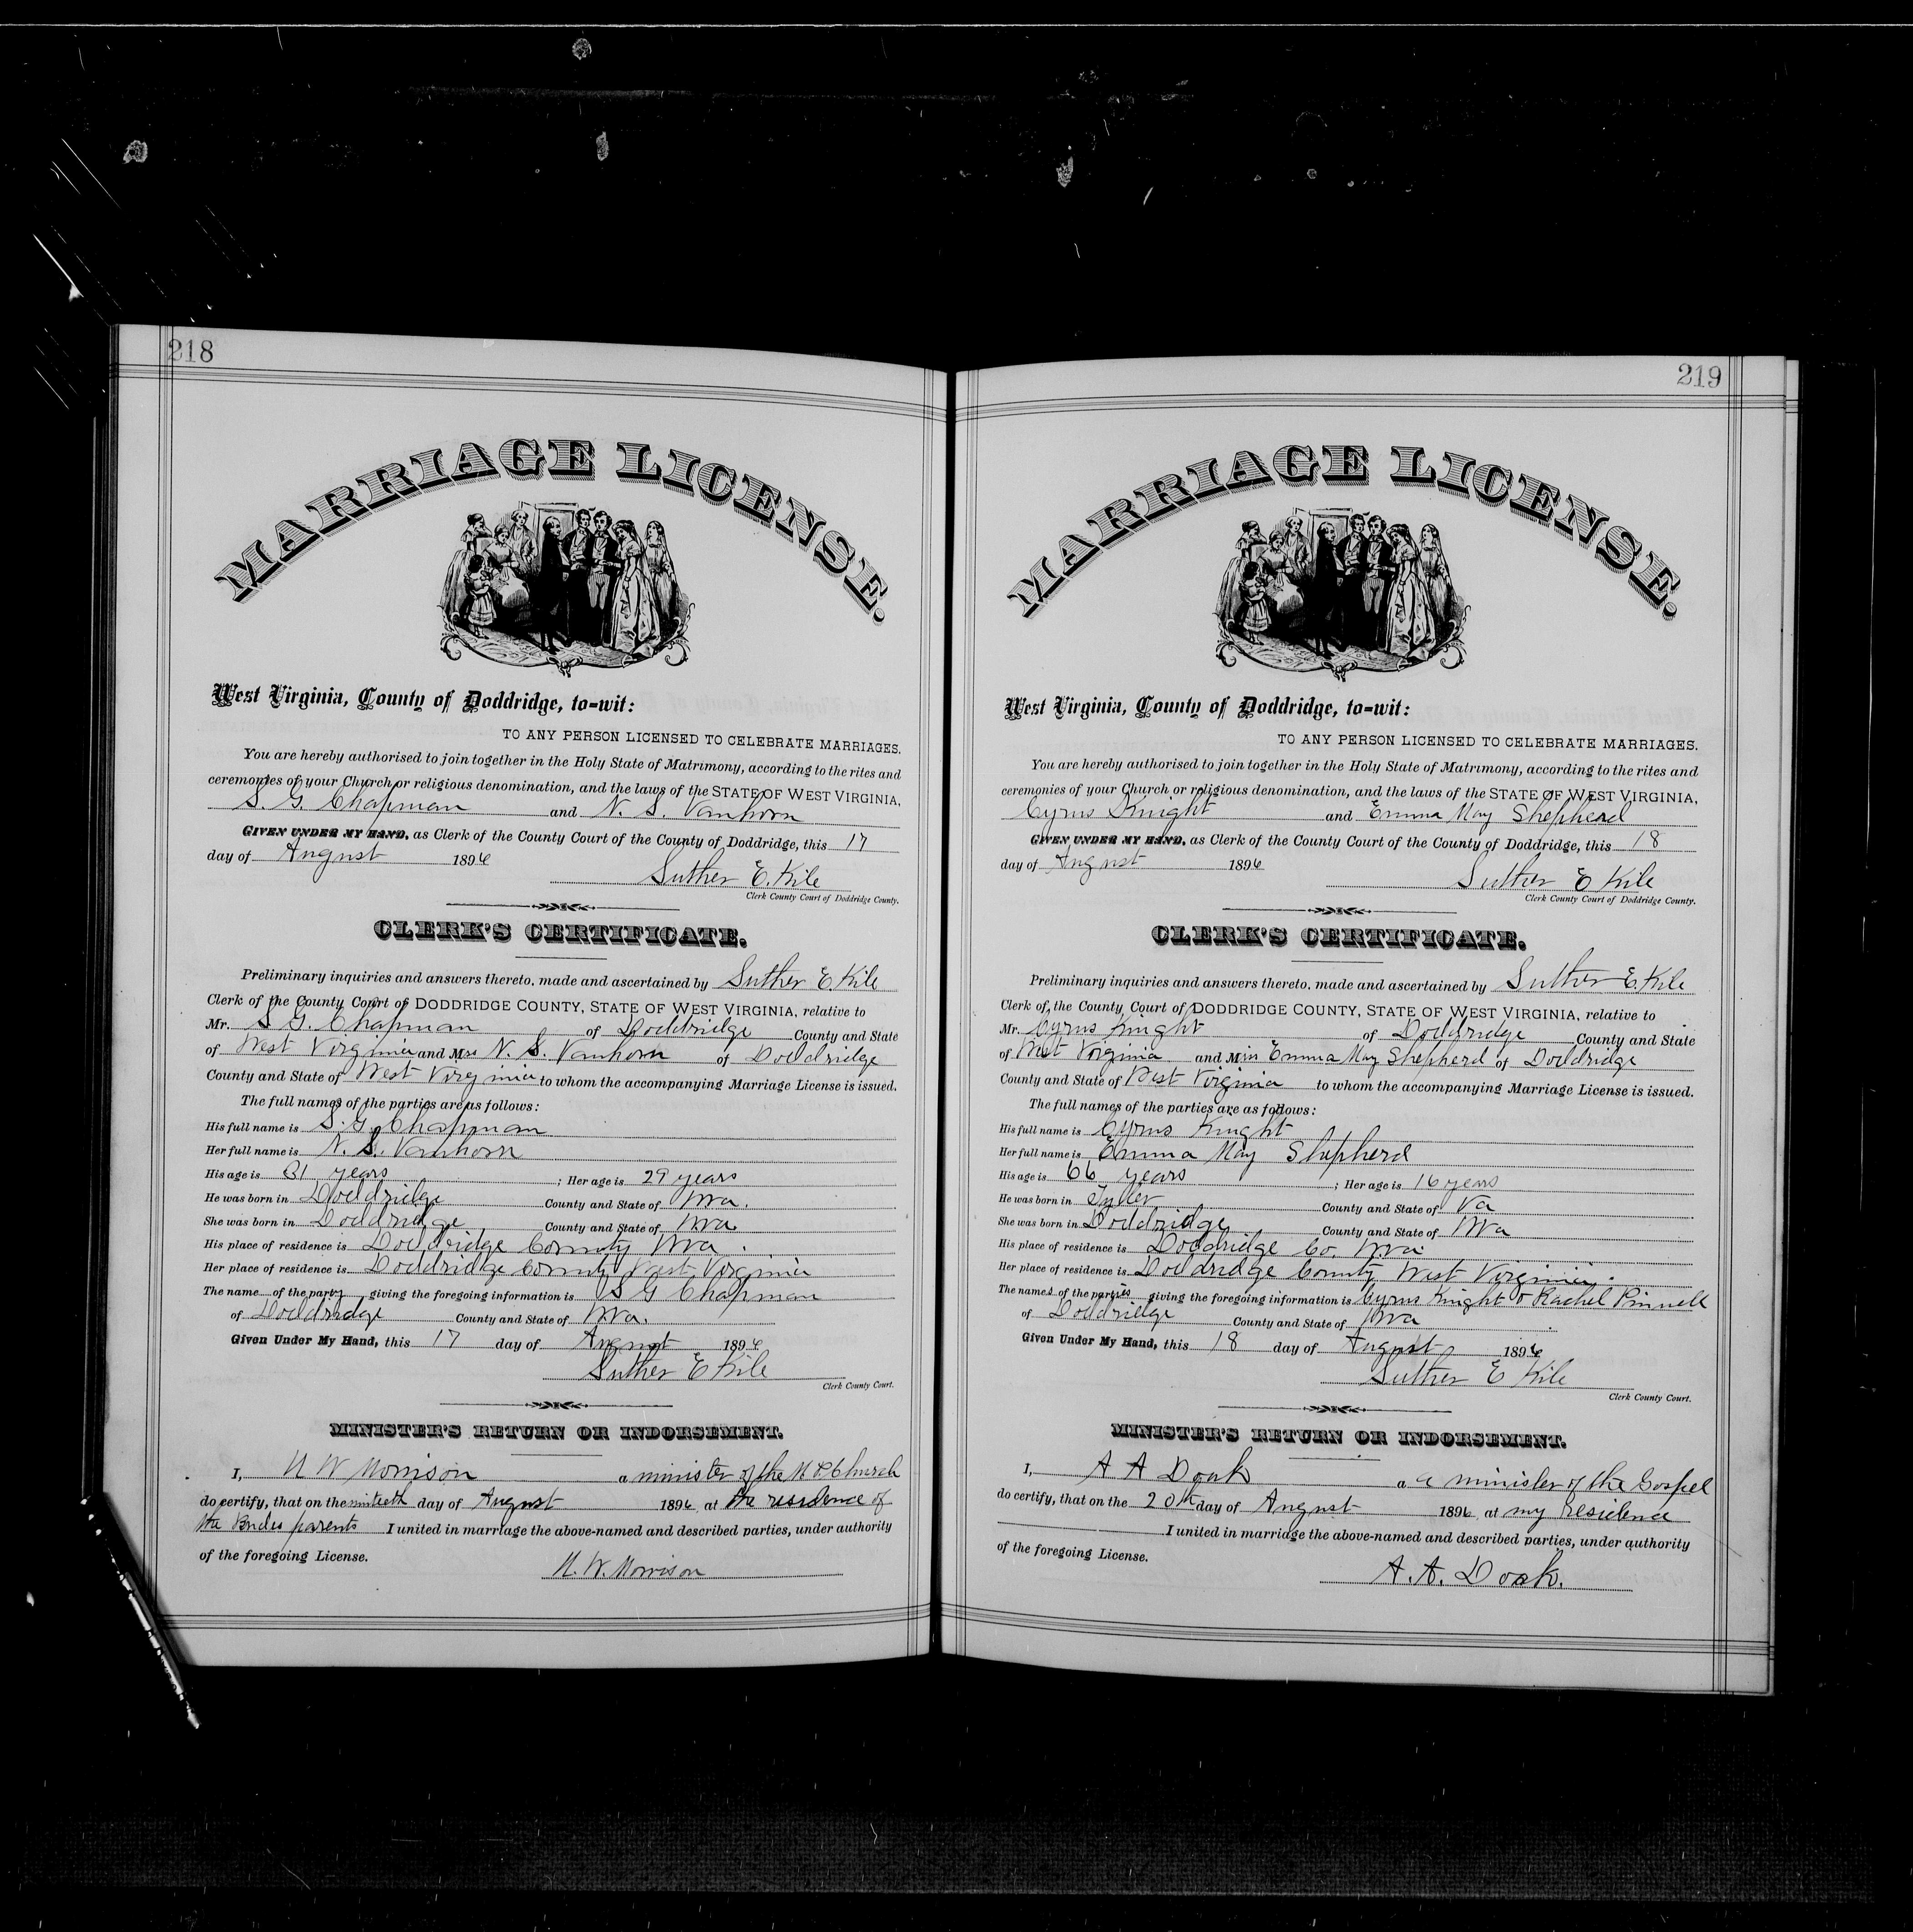 218
MARRIAGE LICENSE.
West Virginia, County of Doddridge, to-wit:
TO ANY PERSON LICENSED TO CELEBRATE MARRIAGES.
You are hereby authorised to join together in the Holy State of Matrimony, according to the rites and
ceremonies of your Church or religious denomination, and the laws of the STATE OF WEST VIRGINIA,
S. G. Chapman and N. S. Vanhorn
GIVEN UNDER MY HAND, as Clerk of the County Court of the County of Doddridge, this 17
day of August 1896
Suther E. Kile
Clerk County Court of Doddridge County.
CLERK'S CERTIFICATE.
Preliminary inquiries and answers thereto, made and ascertained by Suther E. Kile
Clerk of the County Court of DODDRIDGE COUNTY, STATE OF WEST VIRGINIA, relative to
Mr. S G. Chapman of Doddridge County and State
of West Virginia and Miss N. S. Vanhorn of Doddridge
County and State of West Virginia to whom the accompanying Marriage License is issued.
The full names of the parties are as follows:
His full name is S. G. Chapman
Her full name is N. S. Vanhorn
His age is 31 years ; Her age is 29 years
He was born in Doddridge County and State of Wva.
She was born in Doddridge County and State of Wva
His place of residence is Doddridge County Wva.
Her place of residence is Doddridge County West Virginia
The name of the party giving the foregoing information is S G Chapman
of Doddridge County and State of Wva.
Given Under My Hand, this 17 day of August 1896
Suther E Kile
Clerk County Court.
MINISTER'S RETURN OR INDORSEMENT.
I, W Morrison a minister of the M P Church
do certify, that on the day of August 1896 at the residence of
the Brides parents I united in marriage the above-named and described parties, under authority
of the foregoing License.
W. Morrison
219
MARRIAGE LICENSE.
West Virginia, County of Doddridge, to-wit:
TO ANY PERSON LICENSED TO CELEBRATE MARRIAGES.
You are hereby authorised to join together in the Holy State of Matrimony, according to the rites and
ceremonies of your Church or religious denomination, and the laws of the STATE OF WEST VIRGINIA,
Cyrus Knight and Emma May Shepherd
GIVEN UNDER MY HAND, as Clerk of the County Court of the County of Doddridge, this 18
day of August 1896
Suther E Kile
Clerk County Court of Doddridge County.
CLERK'S CERTIFICATE.
Preliminary inquiries and answers thereto, made and ascertained by Suther E. Kile
Clerk of the County Court of DODDRIDGE COUNTY, STATE OF WEST VIRGINIA, relative to
Mr. Cyrus Knight of Doddridge County and State
of West Virginia and Miss Emma May Shepherd of Doddridge
County and State of West Virginia to whom the accompanying Marriage License is issued.
The full names of the parties are as follows:
His full name is Cyrus Knight
Her full name is Emma May Shepherd
His age is 66 years ; Her age is 16 years
He was born in Tyler County and State of Va
She was born in Doddridge County and State of Wva
His place of residence is Doddridge Co. Wva
Her place of residence is Doddridge County West Virginia.
The names of the parties giving the foregoing information is Cyrus Knight & Rachel Pinnell
of Doddridge County and State of Wva
Given Under My Hand, this 18 day of August 1896
Suther E Kile
Clerk County Court.
MINISTER'S RETURN OR INDORSEMENT.
I, A A Doak a a minister of the Gospel
do certify, that on the 20th day of August 1896 at my residence
I united in marriage the above-named and described parties, under authority
of the foregoing License.
A. A. Doak.